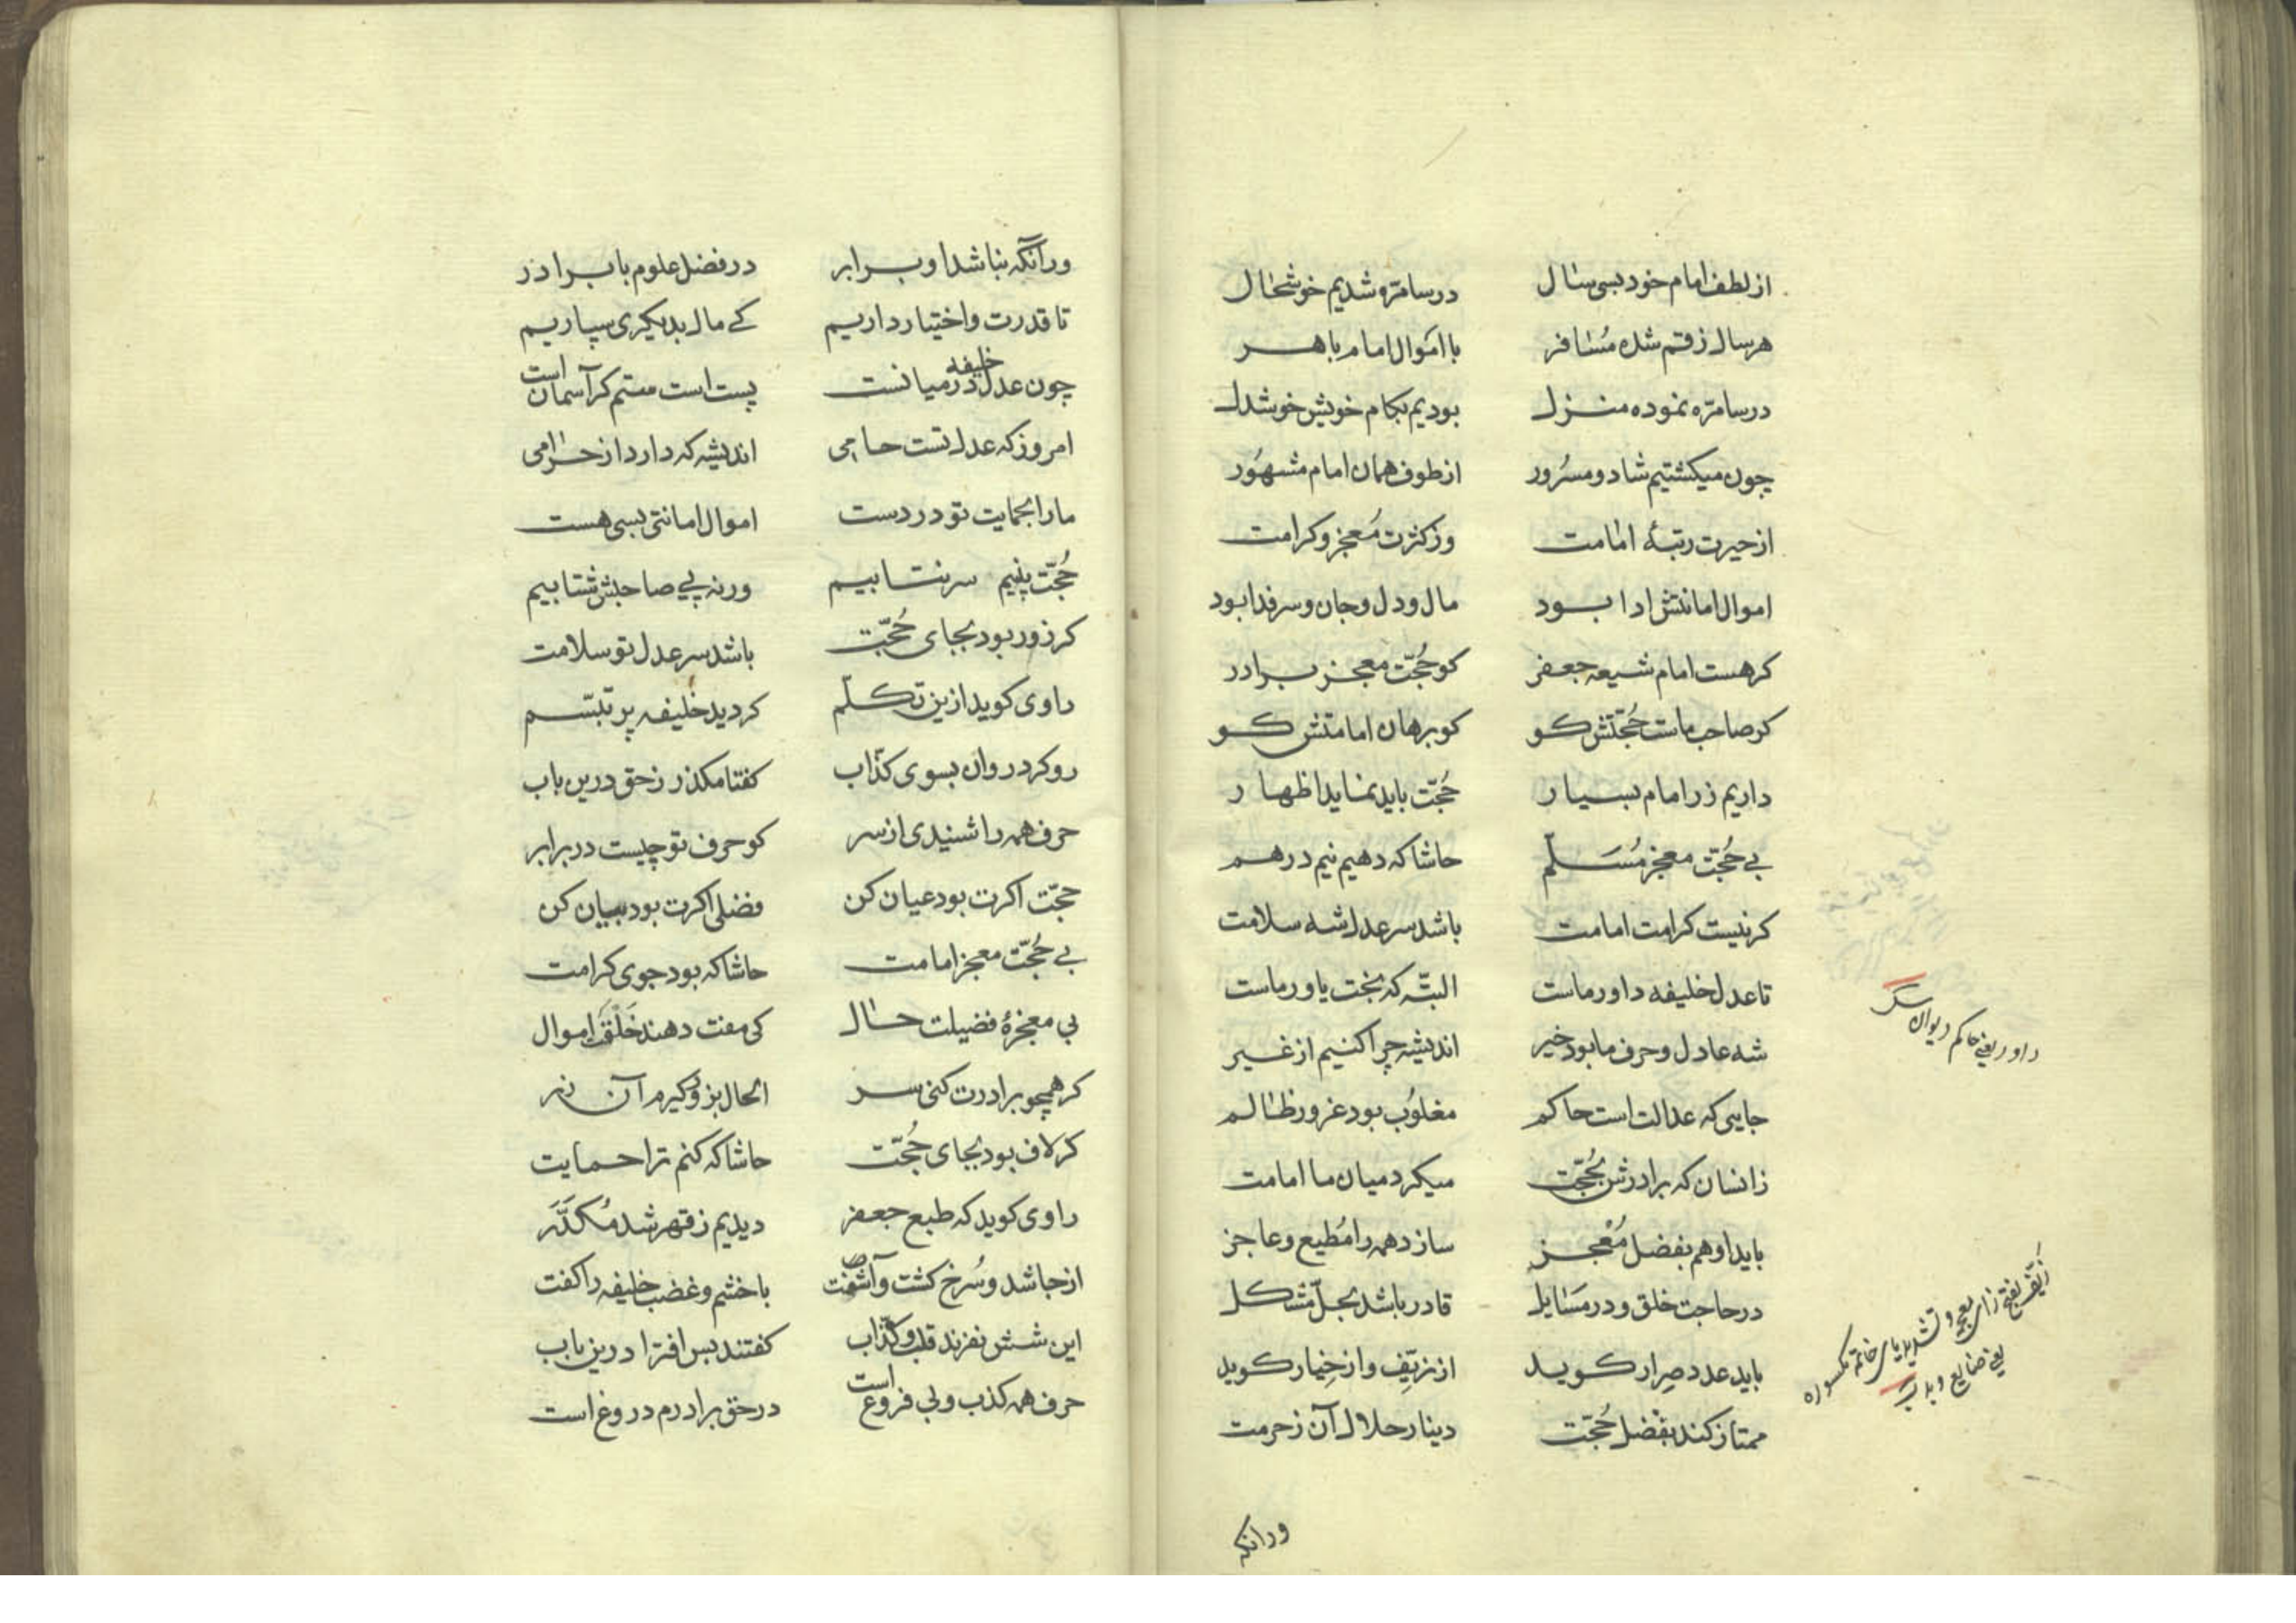 از لطف امام خود بسی سال در سامره شدیم خوشحال
هر سال ز قم شده مُسافر با اَموال امام باهر
در سامرّه نموده منزل بودیم بکام خویش خوشدل
چون میکشتیم شاد و مسرُور از طوف همان امام مشهوُر
از حیرت رتبهٔ امامت وز کثرت مُعجز و کرامت
اموال امانتش ادا بود مال و دل و جان و سر فدا بود
کر هست امام شیعه جعفر کو حُجّت معجز برادر
کر صاحب ماست حُجّتش کو کو برهان امامتش کو
داریم زر امام بسیار حُجّت باید نماید اظهار
بے حُجّت معجز مُسَلّم حاشا که دهیم نیم درهم
کر نیست کرامت امامت باشد سر عدل شه سلامت
تا عدل خلیفه داور ماست البتّه که بخت یاور ماست
شه عادل و حرف ما بود خیر اندیشه چرا کنیم از غیر
جایی که عدالت است حاکم مغلوُب بود غرور ظالم
زانسان که برادرش بحُجّت میکرد میان ما امامت
باید او هم بفضل مُعْجز سازد همه را مُطیع و عاجز
در حاجت خلق و در مَسایل قادر باشد بحلّ مشکل
باید عدد صِرار کوید از زیِّف و از خِیار کوید
ممتاز کند بفَضل حُجّت دینار حلال آن ز حرمت
داور یعنی حاکم دیوان
زیّف بفتح زای معجمه و تشدید یای مکسوره
یعنی ضایع و بد
ورانکه
ورانگه نباشد او برابر در فضل علوم با برادر
تا قدرت و اختیار داریم کے مال بدیکری سپاریم
چون عدل خلیفه در میانست پست است ستم کر آسمان است
امروز که عدل تست حامی اندیشه که دارد از حرامی
ما را بحمایت تو در دست اموال امانتی بسی هست
حُجّت بینیم سر نتابیم ورنه پے صاحبش شتابیم
کر زور بود بجای حُجّت باشد سر عدل تو سلامت
راوی کوید ازین تکلّم کردید خلیفه پر تبسّم
رو کرد روان بسوی کذّاب کفتا مکذر ز حق درین باب
حرف همه را شنیدی از سر کو حرف تو چیست در برابر
حجّت اکرت بود عیان کن فضلی اکرت بود بیان کن
بے حُجّت معجز امامت حاشا که بود جوی کرامت
بی معجزهٔ فضیلت حال کی مفت دهند خَلْق اموال
کر همچو برادرت کنی سر الحال بزور کیرم آن زر
کر لاف بود بجای حُجّت حاشا که کنم ترا حمایت
راوی کوید که طبع جعفر دیدیم ز قهر شد مُکَدَّر
از جا شد و سُرخ کشت و آشفت با خشم و غضب خلیفه را کفت
این شش نفرند قلب و کذّاب کفتند بس افترا درین باب
حرف همه کذب و بی فروغ است در حق برادرم دروغ است